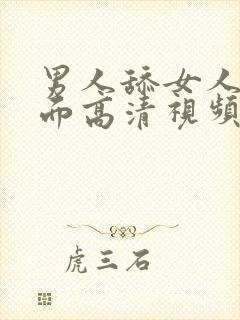 男人舔女人
而高清視頻
虎三石